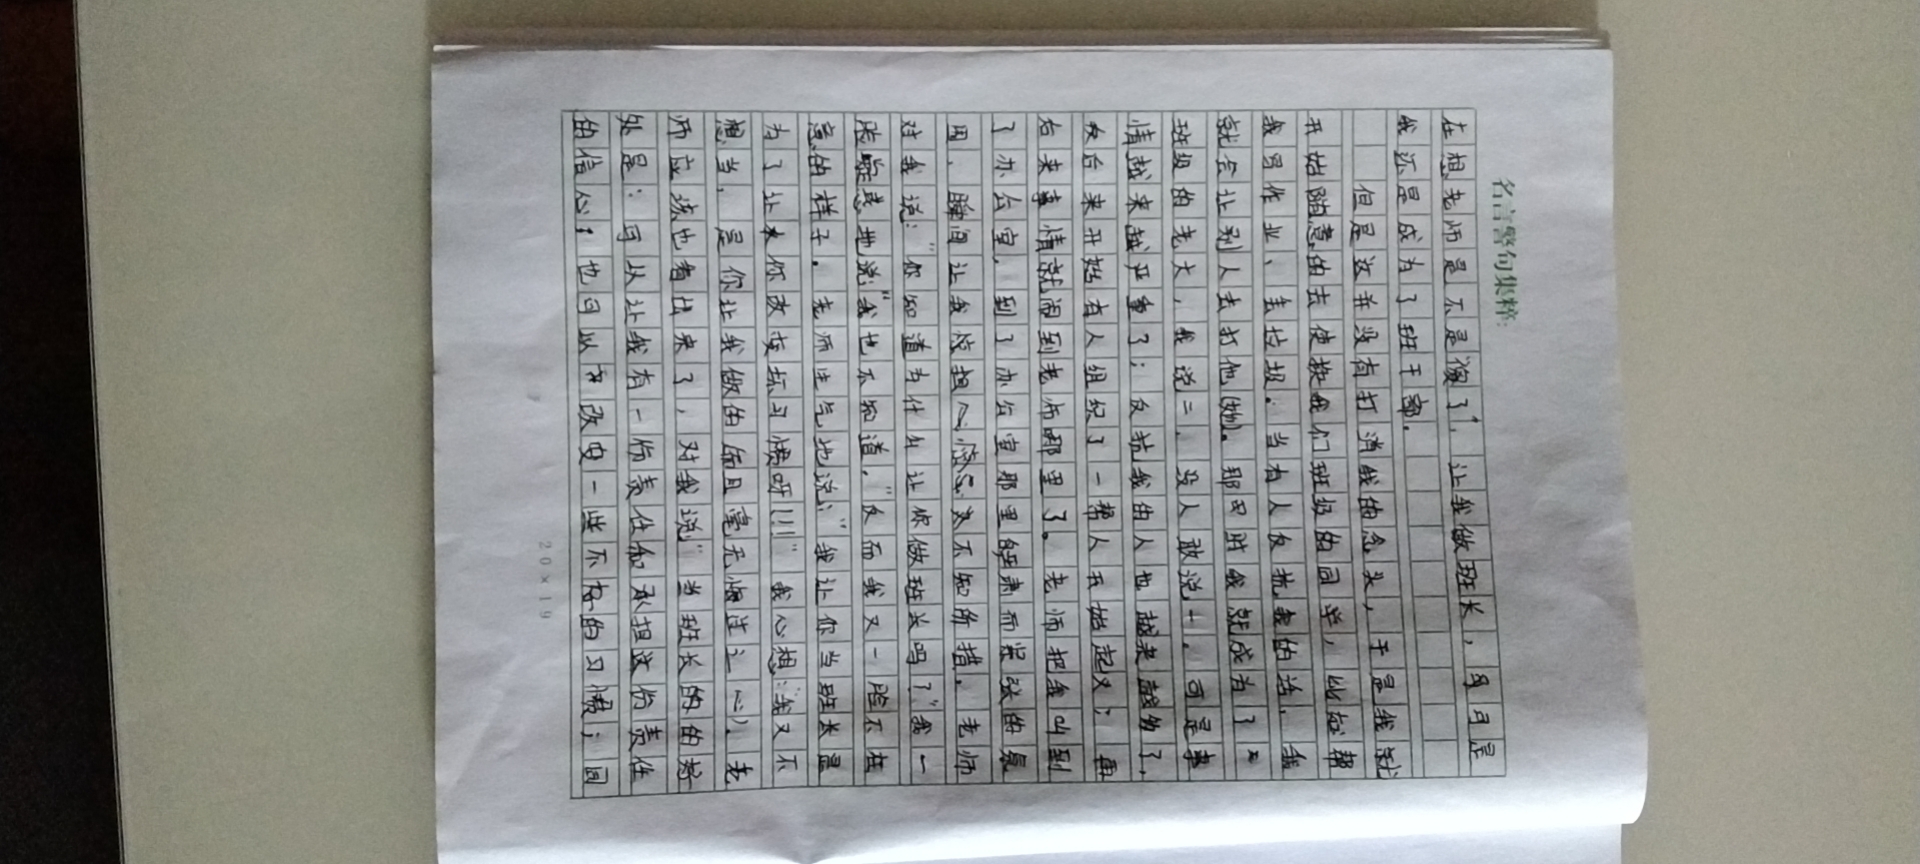 名言警句集粹:
在想老师是不是傻了"，让我做班长，可是
我还是成为了班干部。
但是这并没有打消我的念头，于是我就
开始随意由去使换我们班级的同学，比如帮
我写作业、丢垃圾。当有人反抗我的话，我
就会让别人去打他(她)。那时我就成为了
班级的老大，我说二，没人敢说十，可是事
情越来越严重了；反抗我的人也越来越多了，
后来开始有人组织了一帮人开始起义；再
右来事情就闹到老师哪里了。老师把我叫到
了办公室，到了办公室那里严肃而紧张的氛
围，瞬间让我不知所措。老师
对我说："你知道为什么让你做班长吗？"我一
脸疑惑地说："我也不知道，"反而我又一脸不在
意的样子。老师生气地说："我让你当班长是
为了让你改变坏习惯呀!!!"我心想："我又不
想当，是你让我做的而且毫无悔过之心)，老
师应该也看出来了，对我说"当班长的的好
处是：可以让我有一份责任和承担这份责任
的信心；也可以改变一些不好的习惯；同
20×19